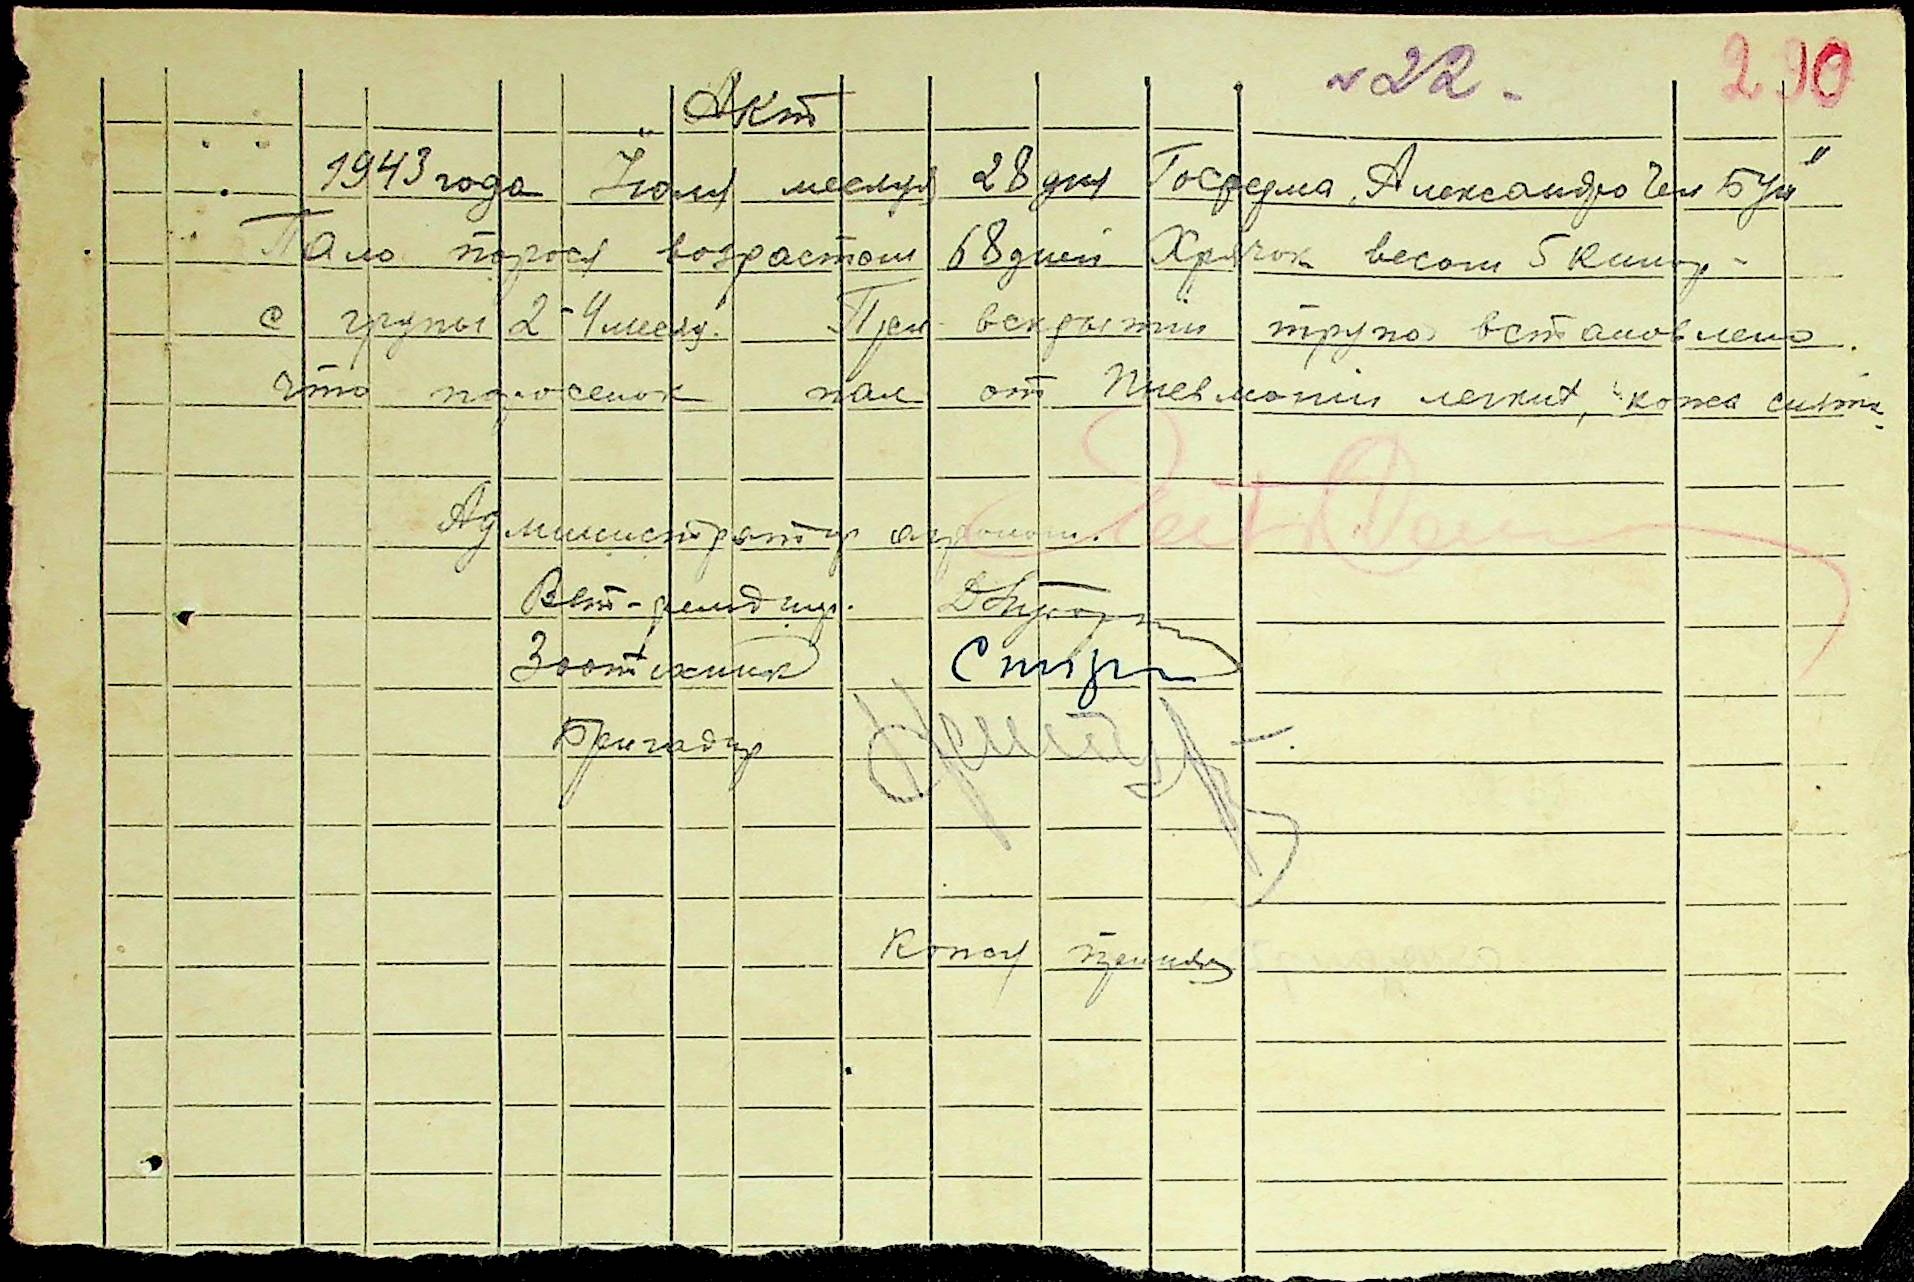 № 22 -
290
Акт
1943 года Июля месяця 28 дня Госферма „Александро
Пало порося возрастом 68 дней Хрячок весом 5 килог-
с групы 2-4 месяц. При вскрытии трупа встановлено
что поросенок пал от Пневмонии легких, кожа снята.
Администратор агроном.
Вет-фельдшер.
Зоотехник
Бригадир